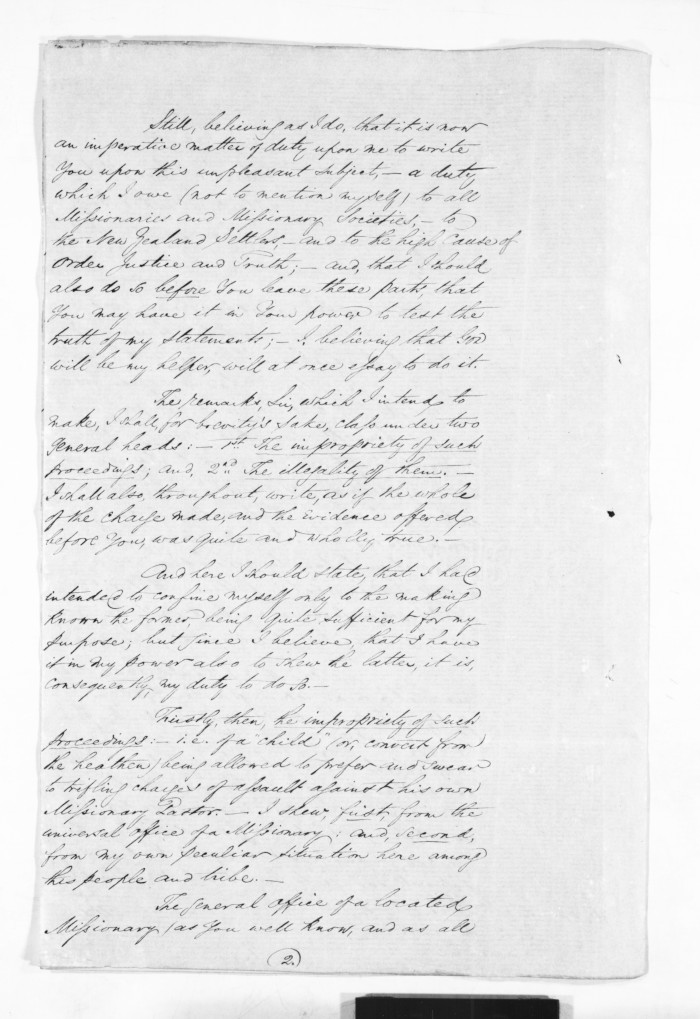 Still, believing as I do, that it is now
an imperative matter of duty upon me to write
You upon this unpleasant subject,— a duty
which I owe (not to mention myself) to all
Missionaries and Missionary Societies,— to
the New Zealand Settlers,— and to the high Cause of
Order Justice and Truth;— and, that I should
also do so before You leave these parts, that
You may have it in Your power to test the
truth of my statements;— I, believing that God
will be my helper, will at once essay to do it.
The remarks, Sir, which I intend to
make, I shall, for brevity's sake, class under two
general heads:— 1st. The impropriety of such
proceedings; and, 2nd. The illegality of them.—
I shall also, throughout, write, as if the whole
of the charge made, and the evidence offered
before You, was quite and wholly true.—
And here I should state, that I had
intended to confine myself only to the making
known the former, being quite sufficient for my
purpose; but since I believe, that I have
it in my power also to shew the latter, it is,
consequently, my duty to do so.—
Firstly, then, the impropriety of such
proceedings:— i.e. of a "child" (or, convert from
the heathen) being allowed to prefer and swear
to trifling charges of assault against his own
Missionary Pastor.— I shew, first, from the
universal office of a Missionary: and, second,
from my own peculiar situation here among
this people and tribe.—
The general office of a located
Missionary (as You well know, and as all
2.